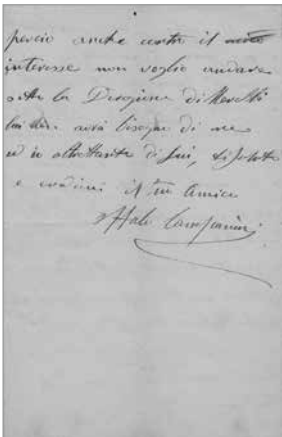 perciò anche contro il mio
interesse non voglio andare
sotto la Direzione di Merelli
lui non avrà bisogno di me
ed io altrettanto di Lui, ti saluto
e credimi il tuo Amico
Italo Campanini